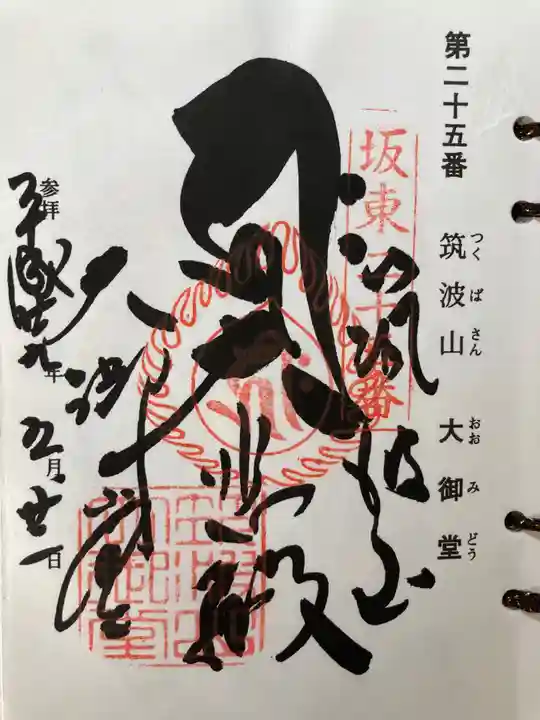 第二十五番 筑波山 大御堂
つくばさん おおみどう
坂東二十五番
筑波山
大悲殿
大御堂
参拝
平成廿九年 五月廿一日